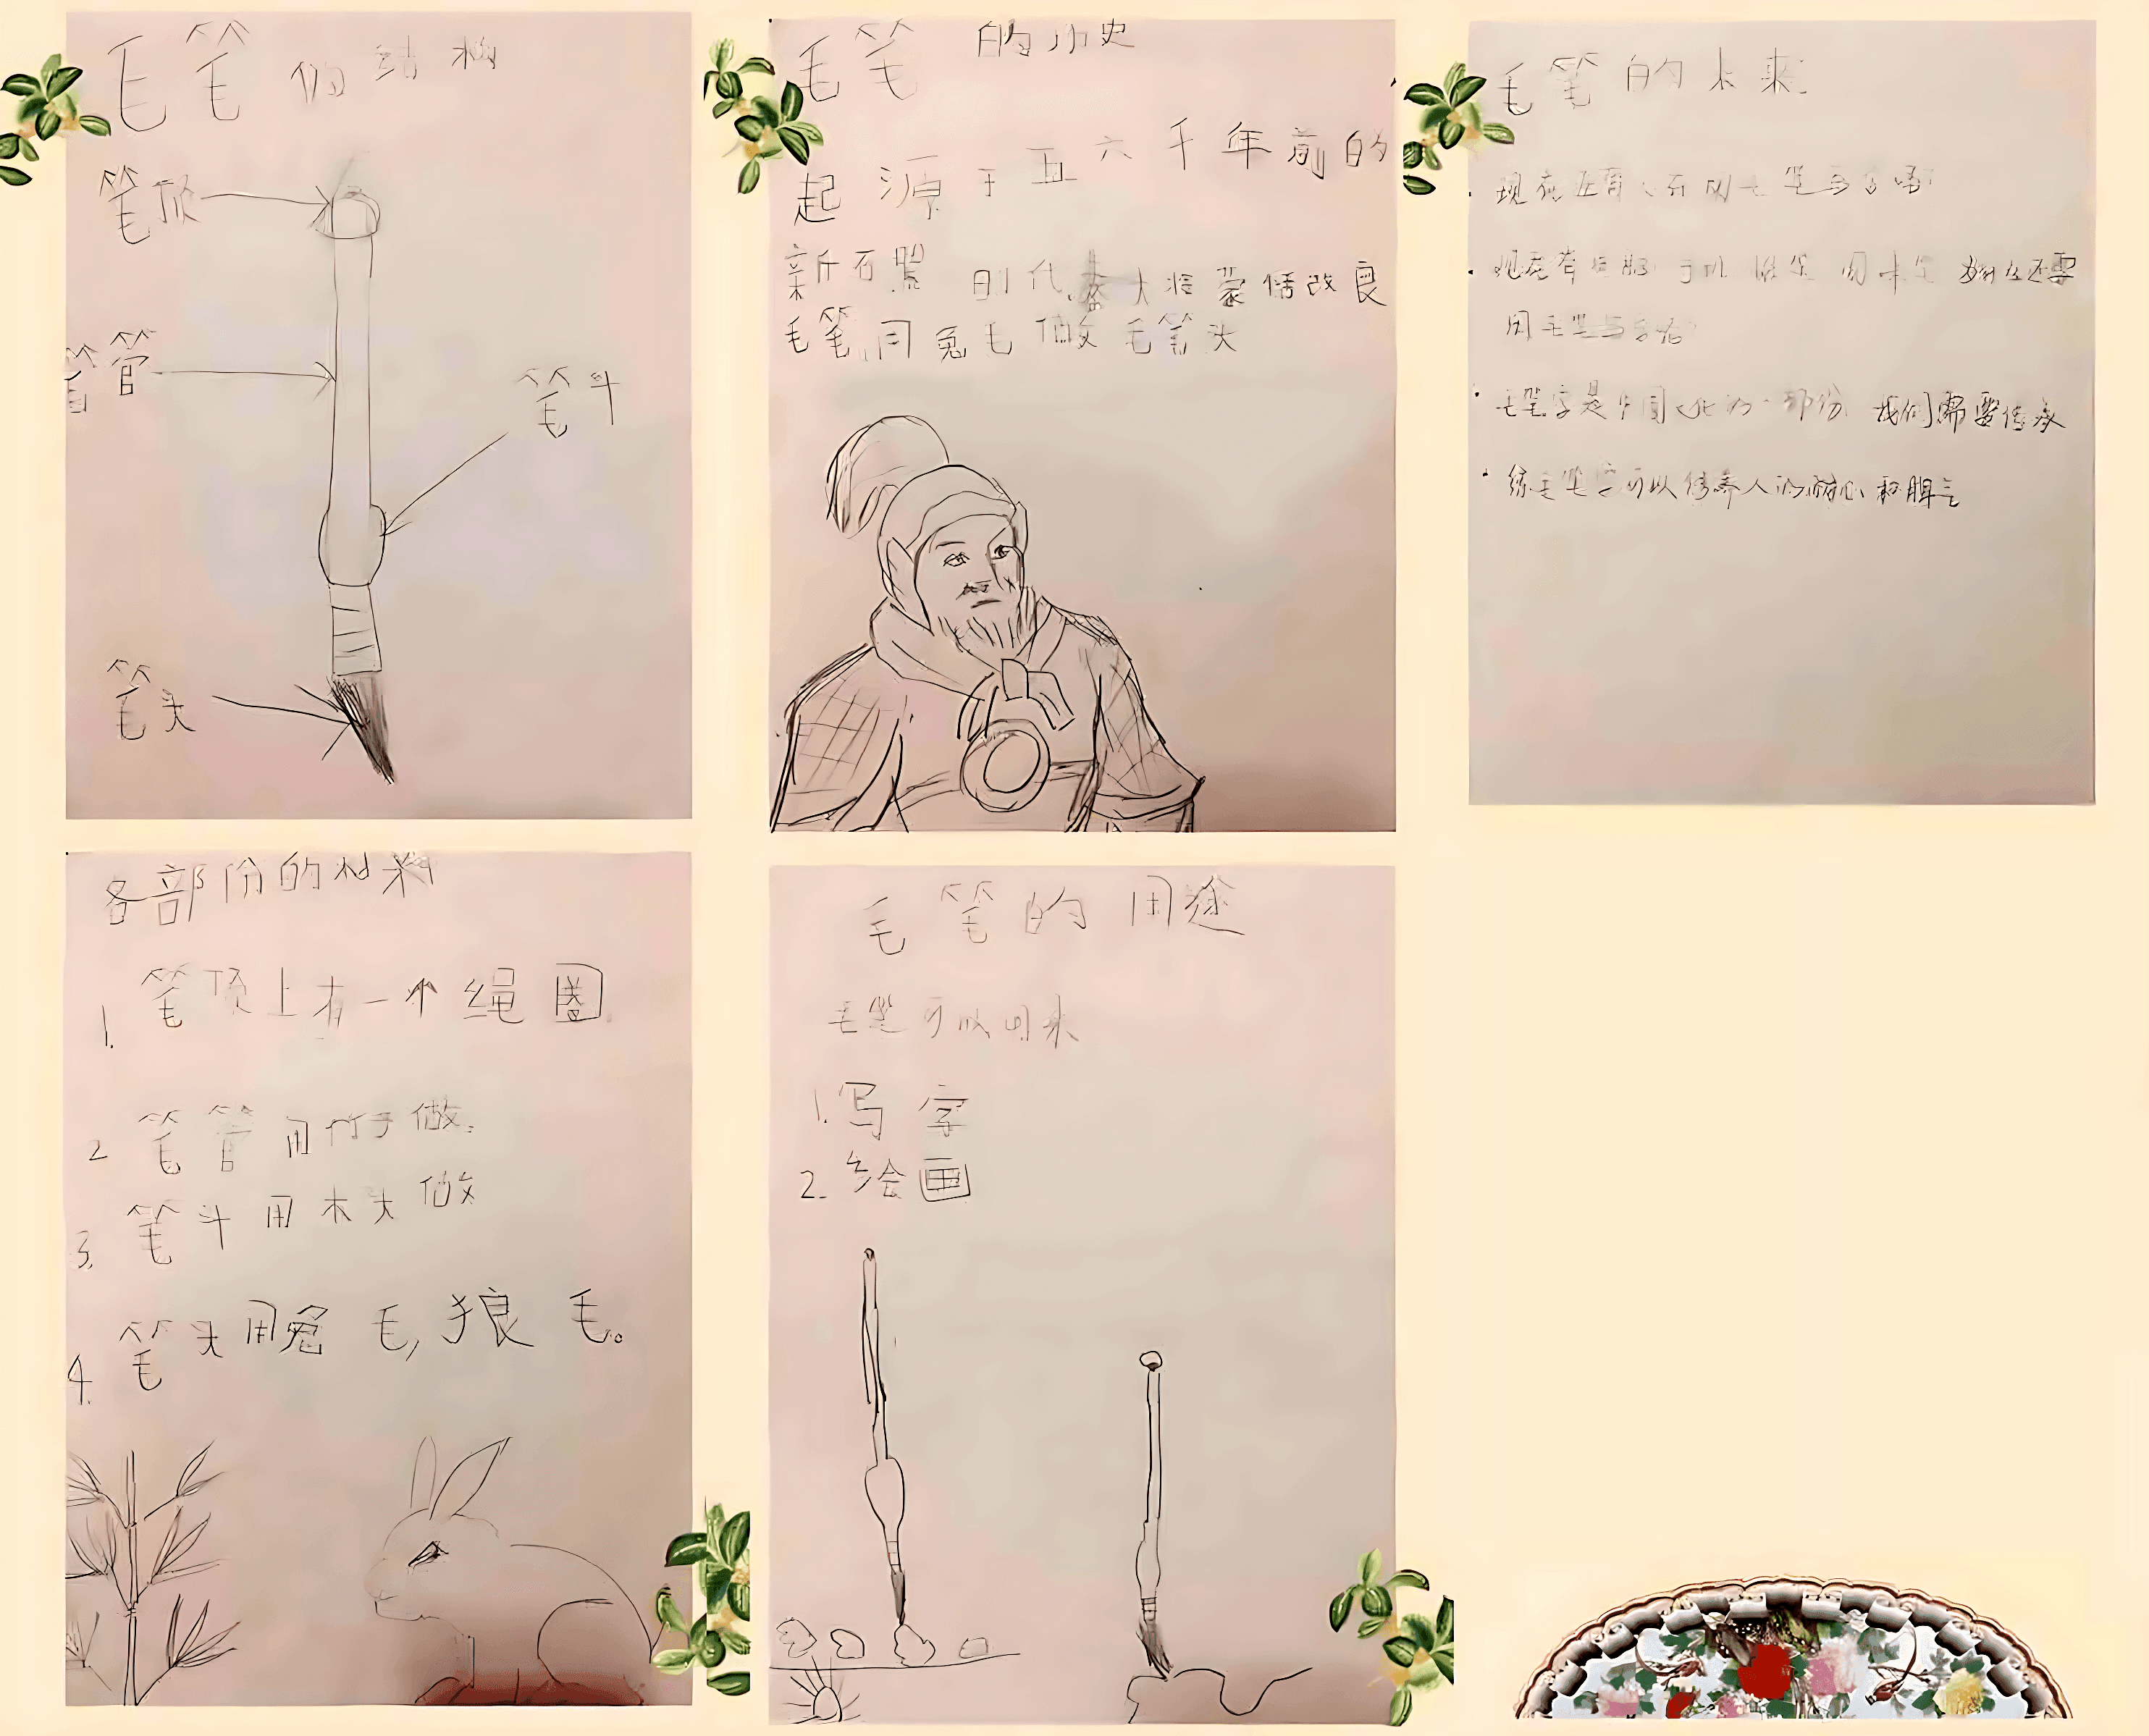 毛笔的结构
笔顶
笔管
笔斗
笔头
毛笔的历史
起源于五六千年前的
新石器时代.秦大将蒙恬改良
毛笔,用兔毛做毛笔头
毛笔的未来
现在还有人在用毛笔写字吗?
用毛笔写字吗?
毛笔字是中国文化的一部份 我们需要传承
练毛笔字可以修养人的耐心和脾气
各部份的材料
1. 笔顶上有一个绳圈.
2 笔管用竹子做.
3. 笔斗用木头做
4. 笔头用兔毛,狼毛。
毛笔的用途
毛笔可以用来
1.写字
2.绘画